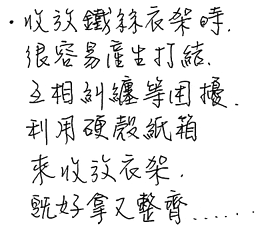 ·收放鐵絲衣架時.
很容易產生打結.
互相糾纏等困擾.
利用硬殼紙箱
來收放衣架.
既好拿又整齊......